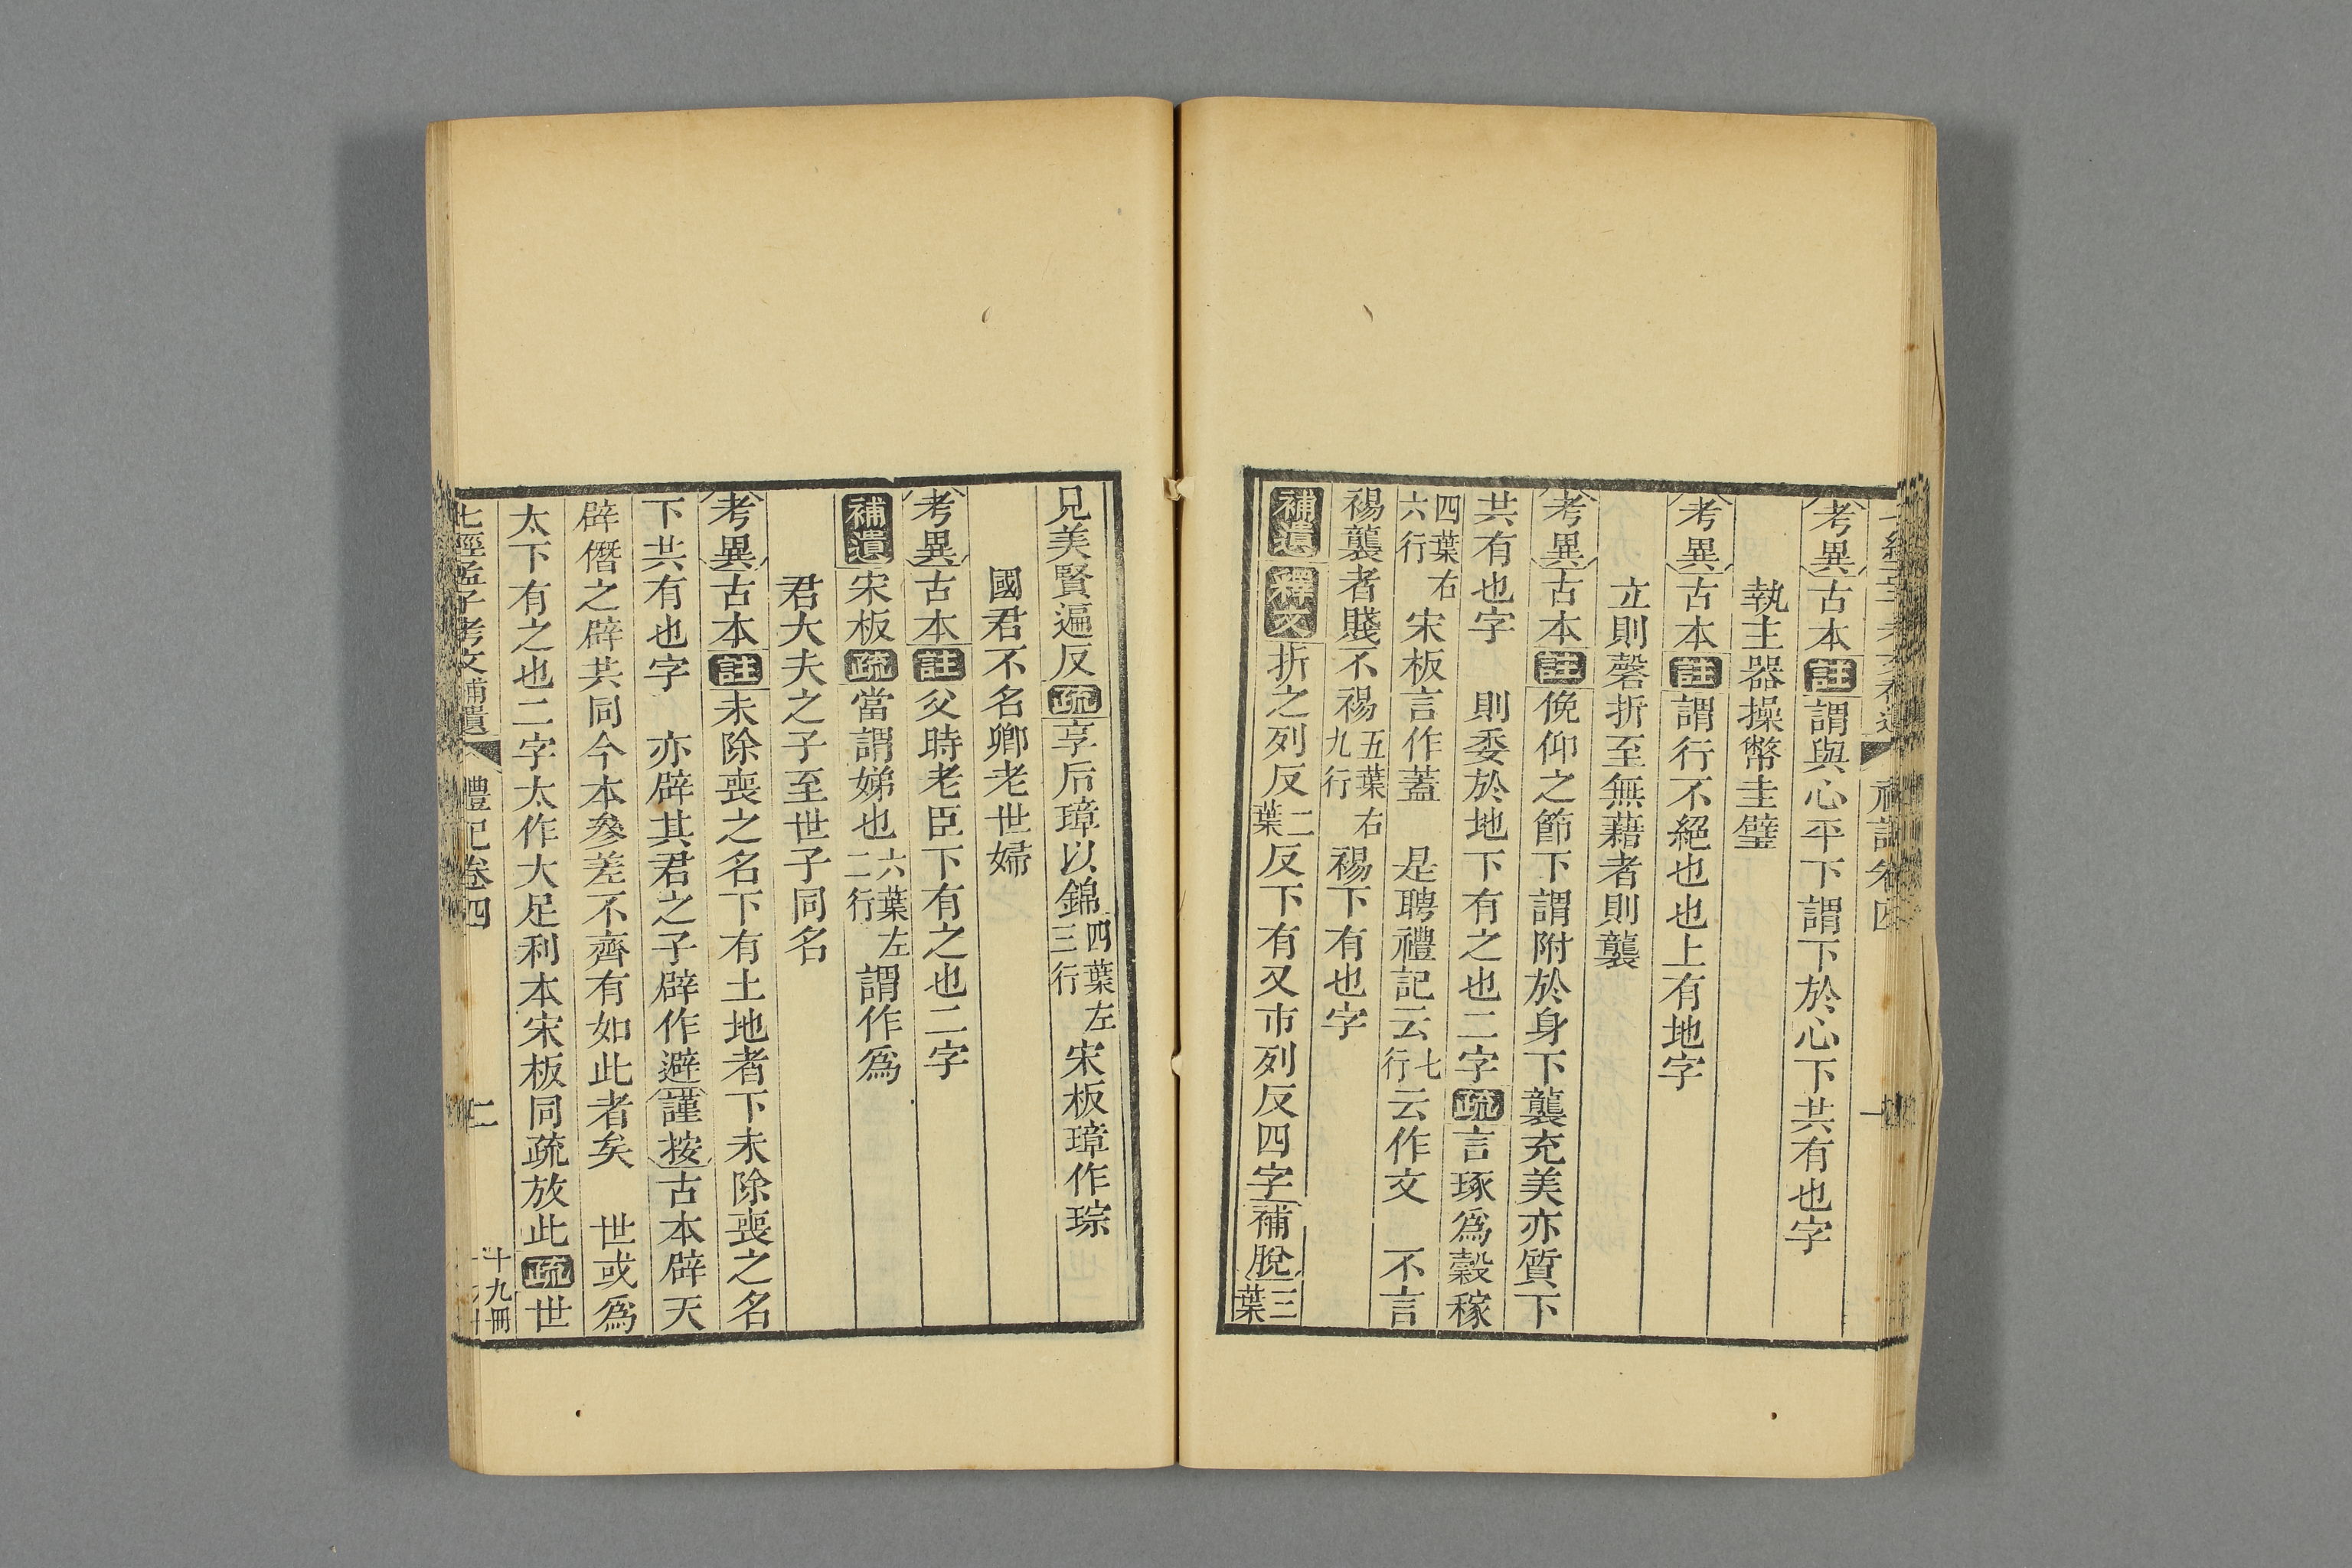 考異古本註謂與心平下謂下於心下共有也字
執主器操幣圭璧
考異古本註謂行不絕也也上有地字
立則磬折至無藉者則襲
考異古本註俛仰之節下謂附於身下襲充美亦質下
共有也字 則委於地下有之也二字疏言琢爲穀稼
四葉右六行宋板言作蓋 是聘禮記云七行云作文 不言
裼襲者賤不裼五葉右九行裼下有也字
補遺釋文折之列反二葉反下有又市列反四字補脫三葉
兄美賢遍反疏享后璋以錦四葉左三行宋板璋作琮
國君不名卿老世婦
考異古本註父時老臣下有之也二字
補遺宋板疏當謂娣也六葉左二行謂作爲
君大夫之子至世子同名
考異古本註未除喪之名下有土地者下未除喪之名
下共有也字 亦辟其君之子辟作避謹按古本辟天
辟僭之辟共同今本參差不齊有如此者矣 世或爲
太下有之也二字太作大足利本宋板同疏放此疏世
七經孟子考文補遺 禮記卷四 二 十九冊